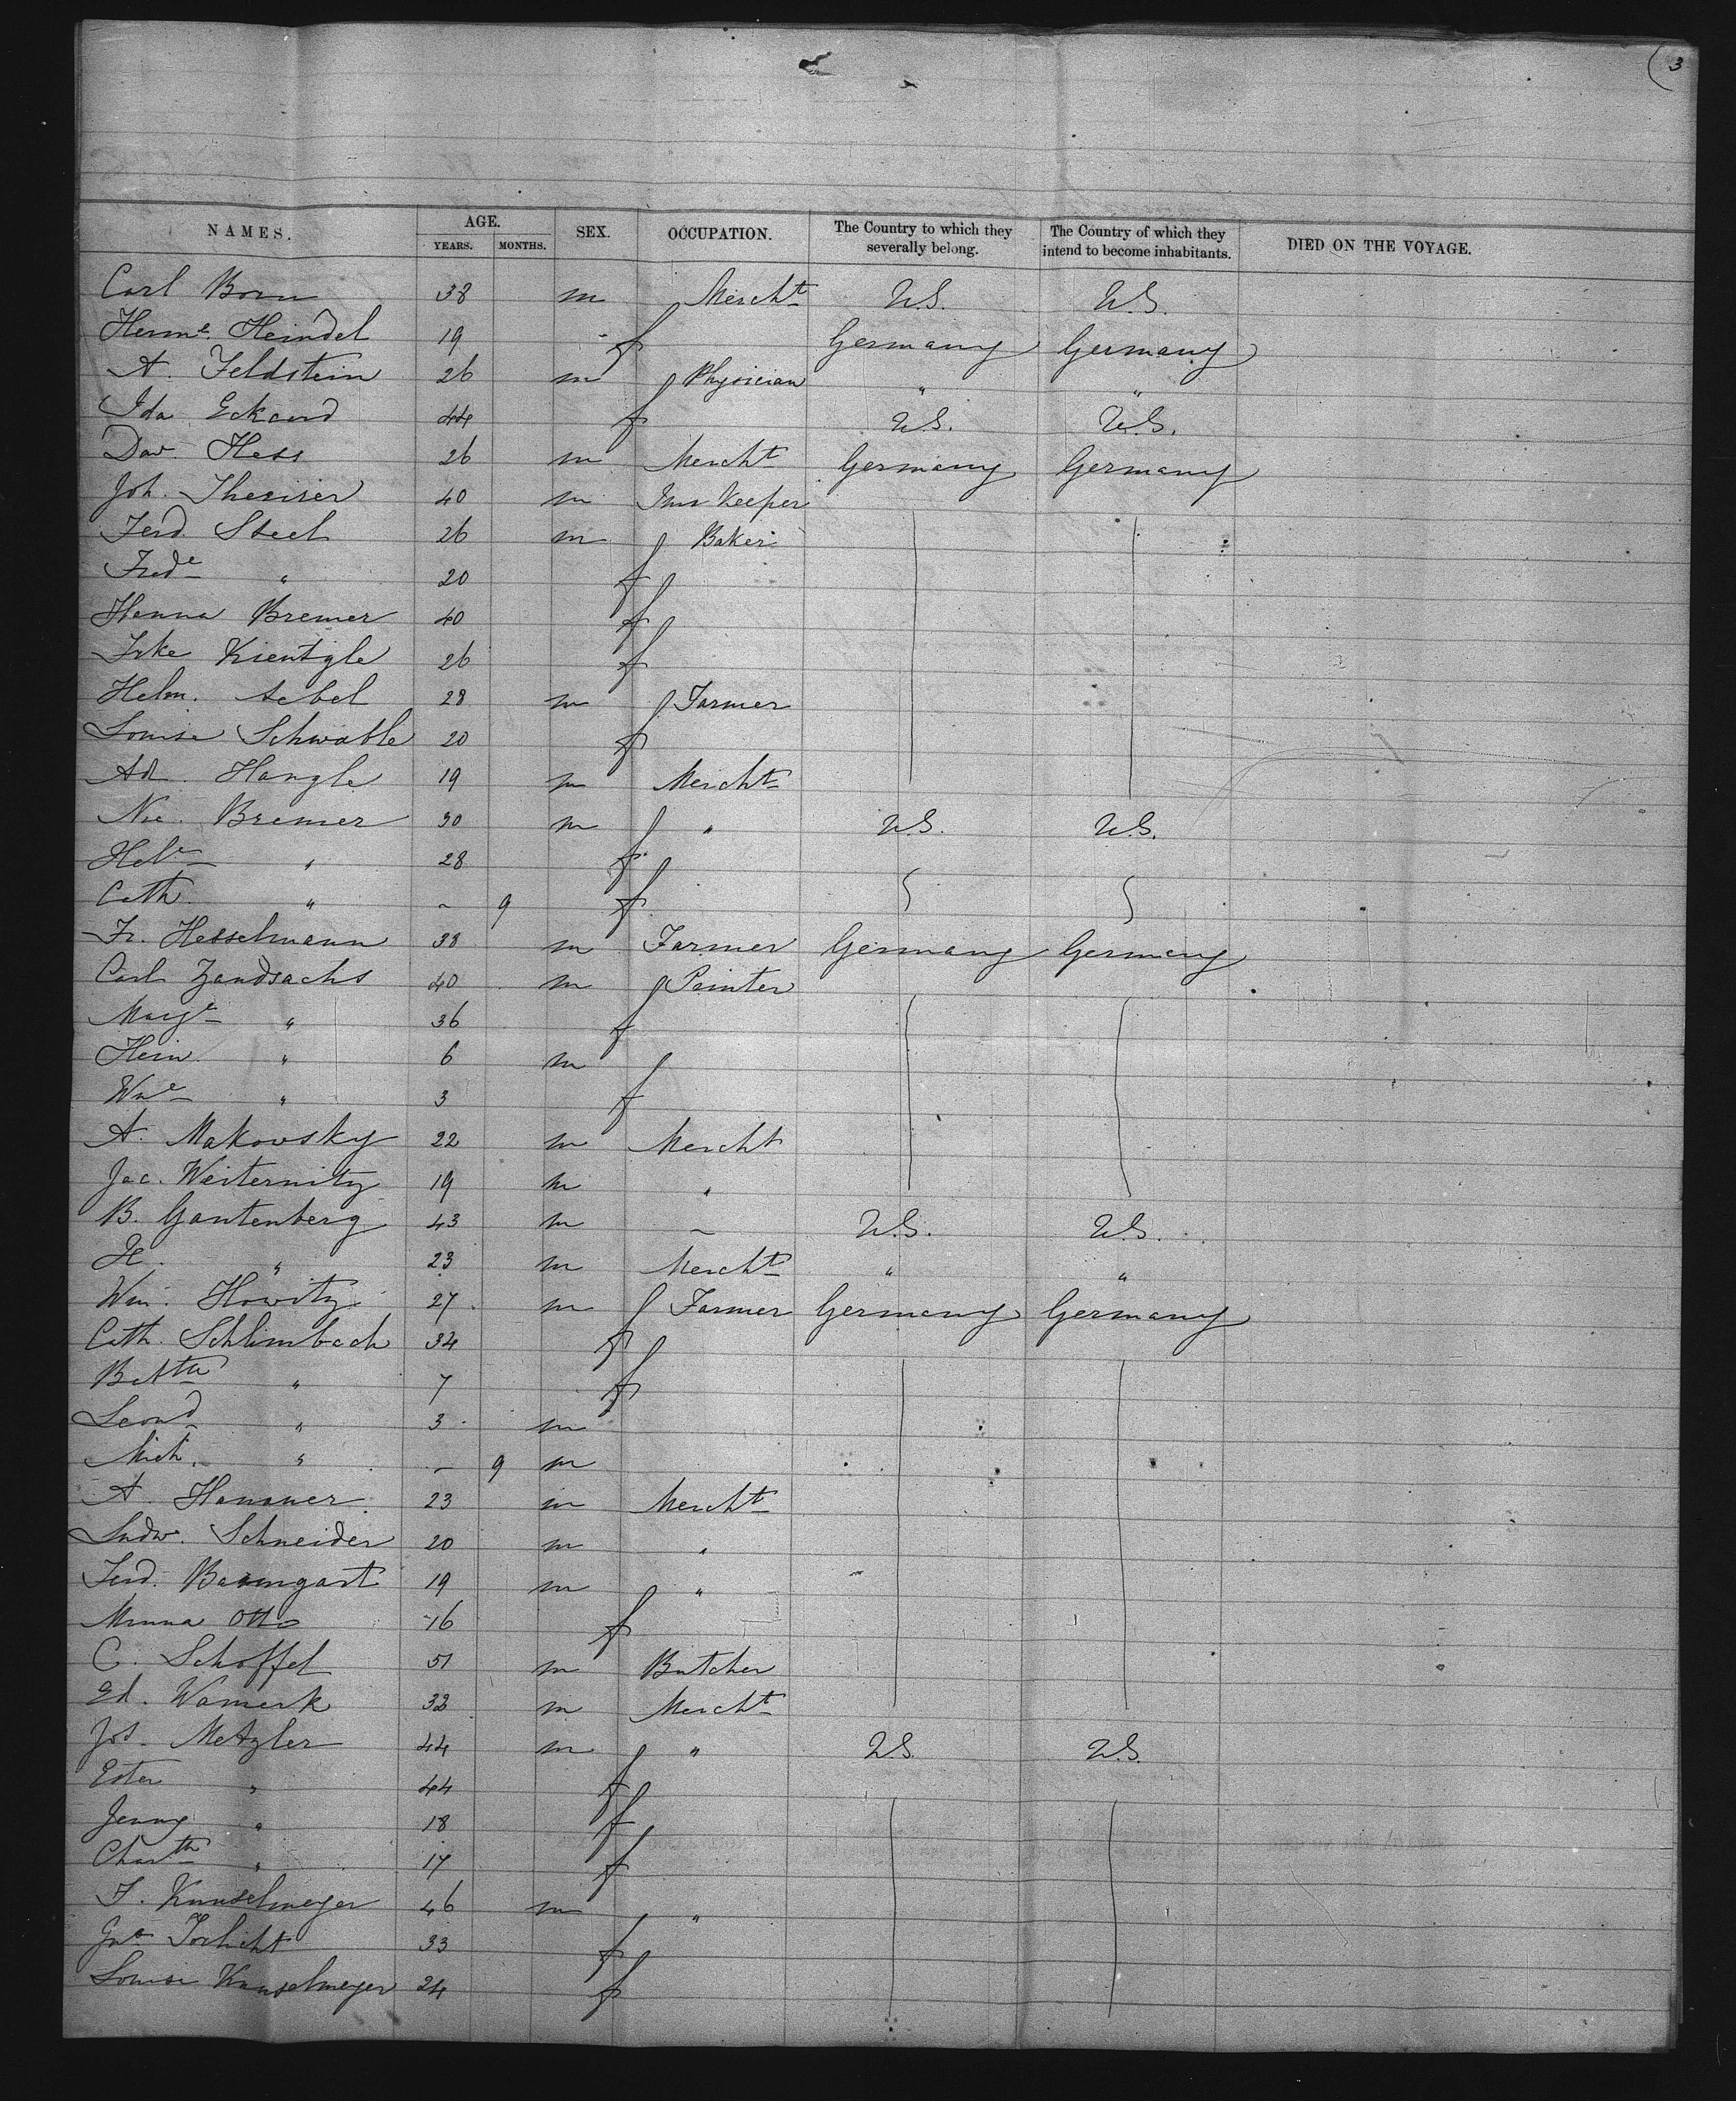 (3
NAMES. AGE. SEX. OCCUPATION. The Country to which they severally belong. The Country of which they intend to become inhabitants. DIED ON THE VOYAGE.
YEARS. MONTHS.
Carl Born 38 m Mercht U.S. U.S.
Herme Heindel 19 f Germany Germany
A. Feldstein 26 m Physician " "
Ida Eckard 44 f U.S. U.S.
Dav. Hess 26 m Mercht Germany Germany
Joh. 40 m Inn Keeper
Ferd. Steel 26 m Baker
Frede " 20 f
Hanna Bremer 40 f
Frke Kientzle 26 f
Helm. Aebel 28 m Farmer
Louise Schwable 20 f
Ad. Hangle 19 m Mercht
Nic. Bremer 30 m " U.S. U.S.
Hele " 28 f
Cath. " - 9 f
Fr. Hesselmann 38 m Farmer Germany Germany
Carl Zandsachs 40 m Painter
Marge " 36 f
Hein. " 6 m
Wne " 3 f
A. Makowsky 22 m Mercht
Jac. Weiternitz 19 m "
B. Gantenberg 43 m - U.S. U.S.
H. " 23 m Mercht " "
Wm. Howitz 27 m Farmer Germany Germany
Cath. Schlimbach 34 f
Bettu " 7 f
Leond " 3 m
Mich. " - 9 m
A. Hanauer 23 m Mercht
Ludw. Schneider 20 m "
Ferd. Baumgart 19 m "
Minna Otto 16 f
C. Schoffel 51 m Butcher
Ed. Wamerk 32 m Mercht
Jos. Metzler 44 m " U.S. U.S.
Ester " 44 f
Jenny " 18 f
Charth " 17 f
F. Kunselmeyer 46 m "
33 f
Louise Kunselmeyer 24 f